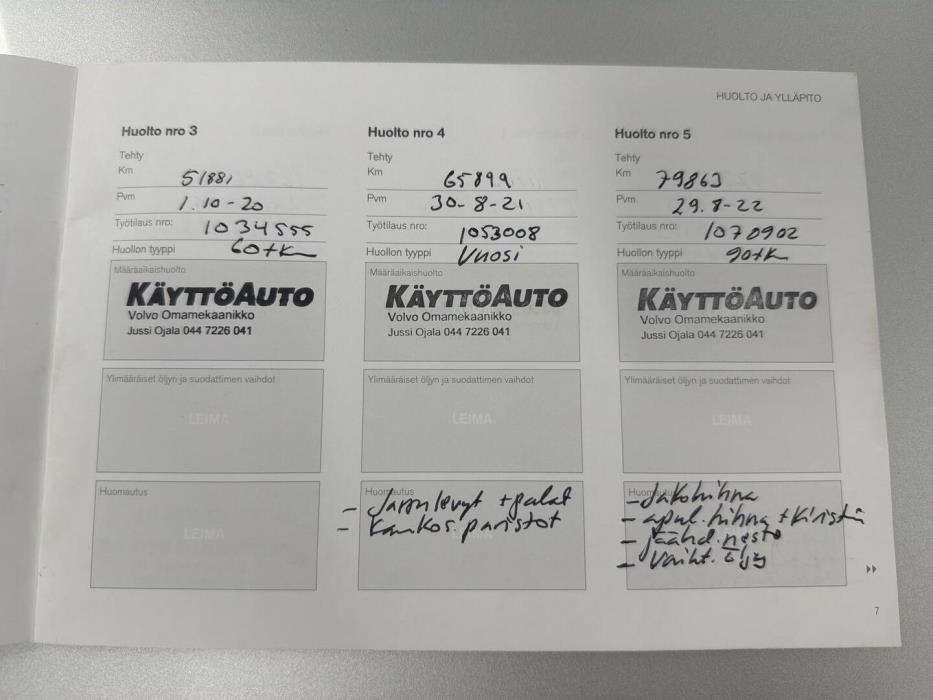 HUOLTO JA YLLÄPITO
Huolto nro 3
Tehty
Km 51881
Pvm 1.10-20
Työtilaus nro: 1034555
Huollon tyyppi 60tk
Määräaikaishuolto
KÄYTTÖAUTO
Volvo Omamekaanikko
Jussi Ojala 044 7226 041
Ylimääräiset öljyn ja suodattimen vaihdot
LEIMA
Huomautus
LEIMA
Huolto nro 4
Tehty
Km 65899
Pvm 30-8-21
Työtilaus nro: 1053008
Huollon tyyppi Vuosi
Määräaikaishuolto
KÄYTTÖAUTO
Volvo Omamekaanikko
Jussi Ojala 044 7226 041
Ylimääräiset öljyn ja suodattimen vaihdot
LEIMA
Huomautus
- Jarrulevyt + palat
- Kaukos. paristot
LEIMA
Huolto nro 5
Tehty
Km 79863
Pvm 29.8-22
Työtilaus nro: 1070902
Huollon tyyppi 90tk
Määräaikaishuolto
KÄYTTÖAUTO
Volvo Omamekaanikko
Jussi Ojala 044 7226 041
Ylimääräiset öljyn ja suodattimen vaihdot
LEIMA
Huomautus
- Jakohihna
- apul. hihna + kiristin
- jäähd. nesto
- Vaiht. öljy
7